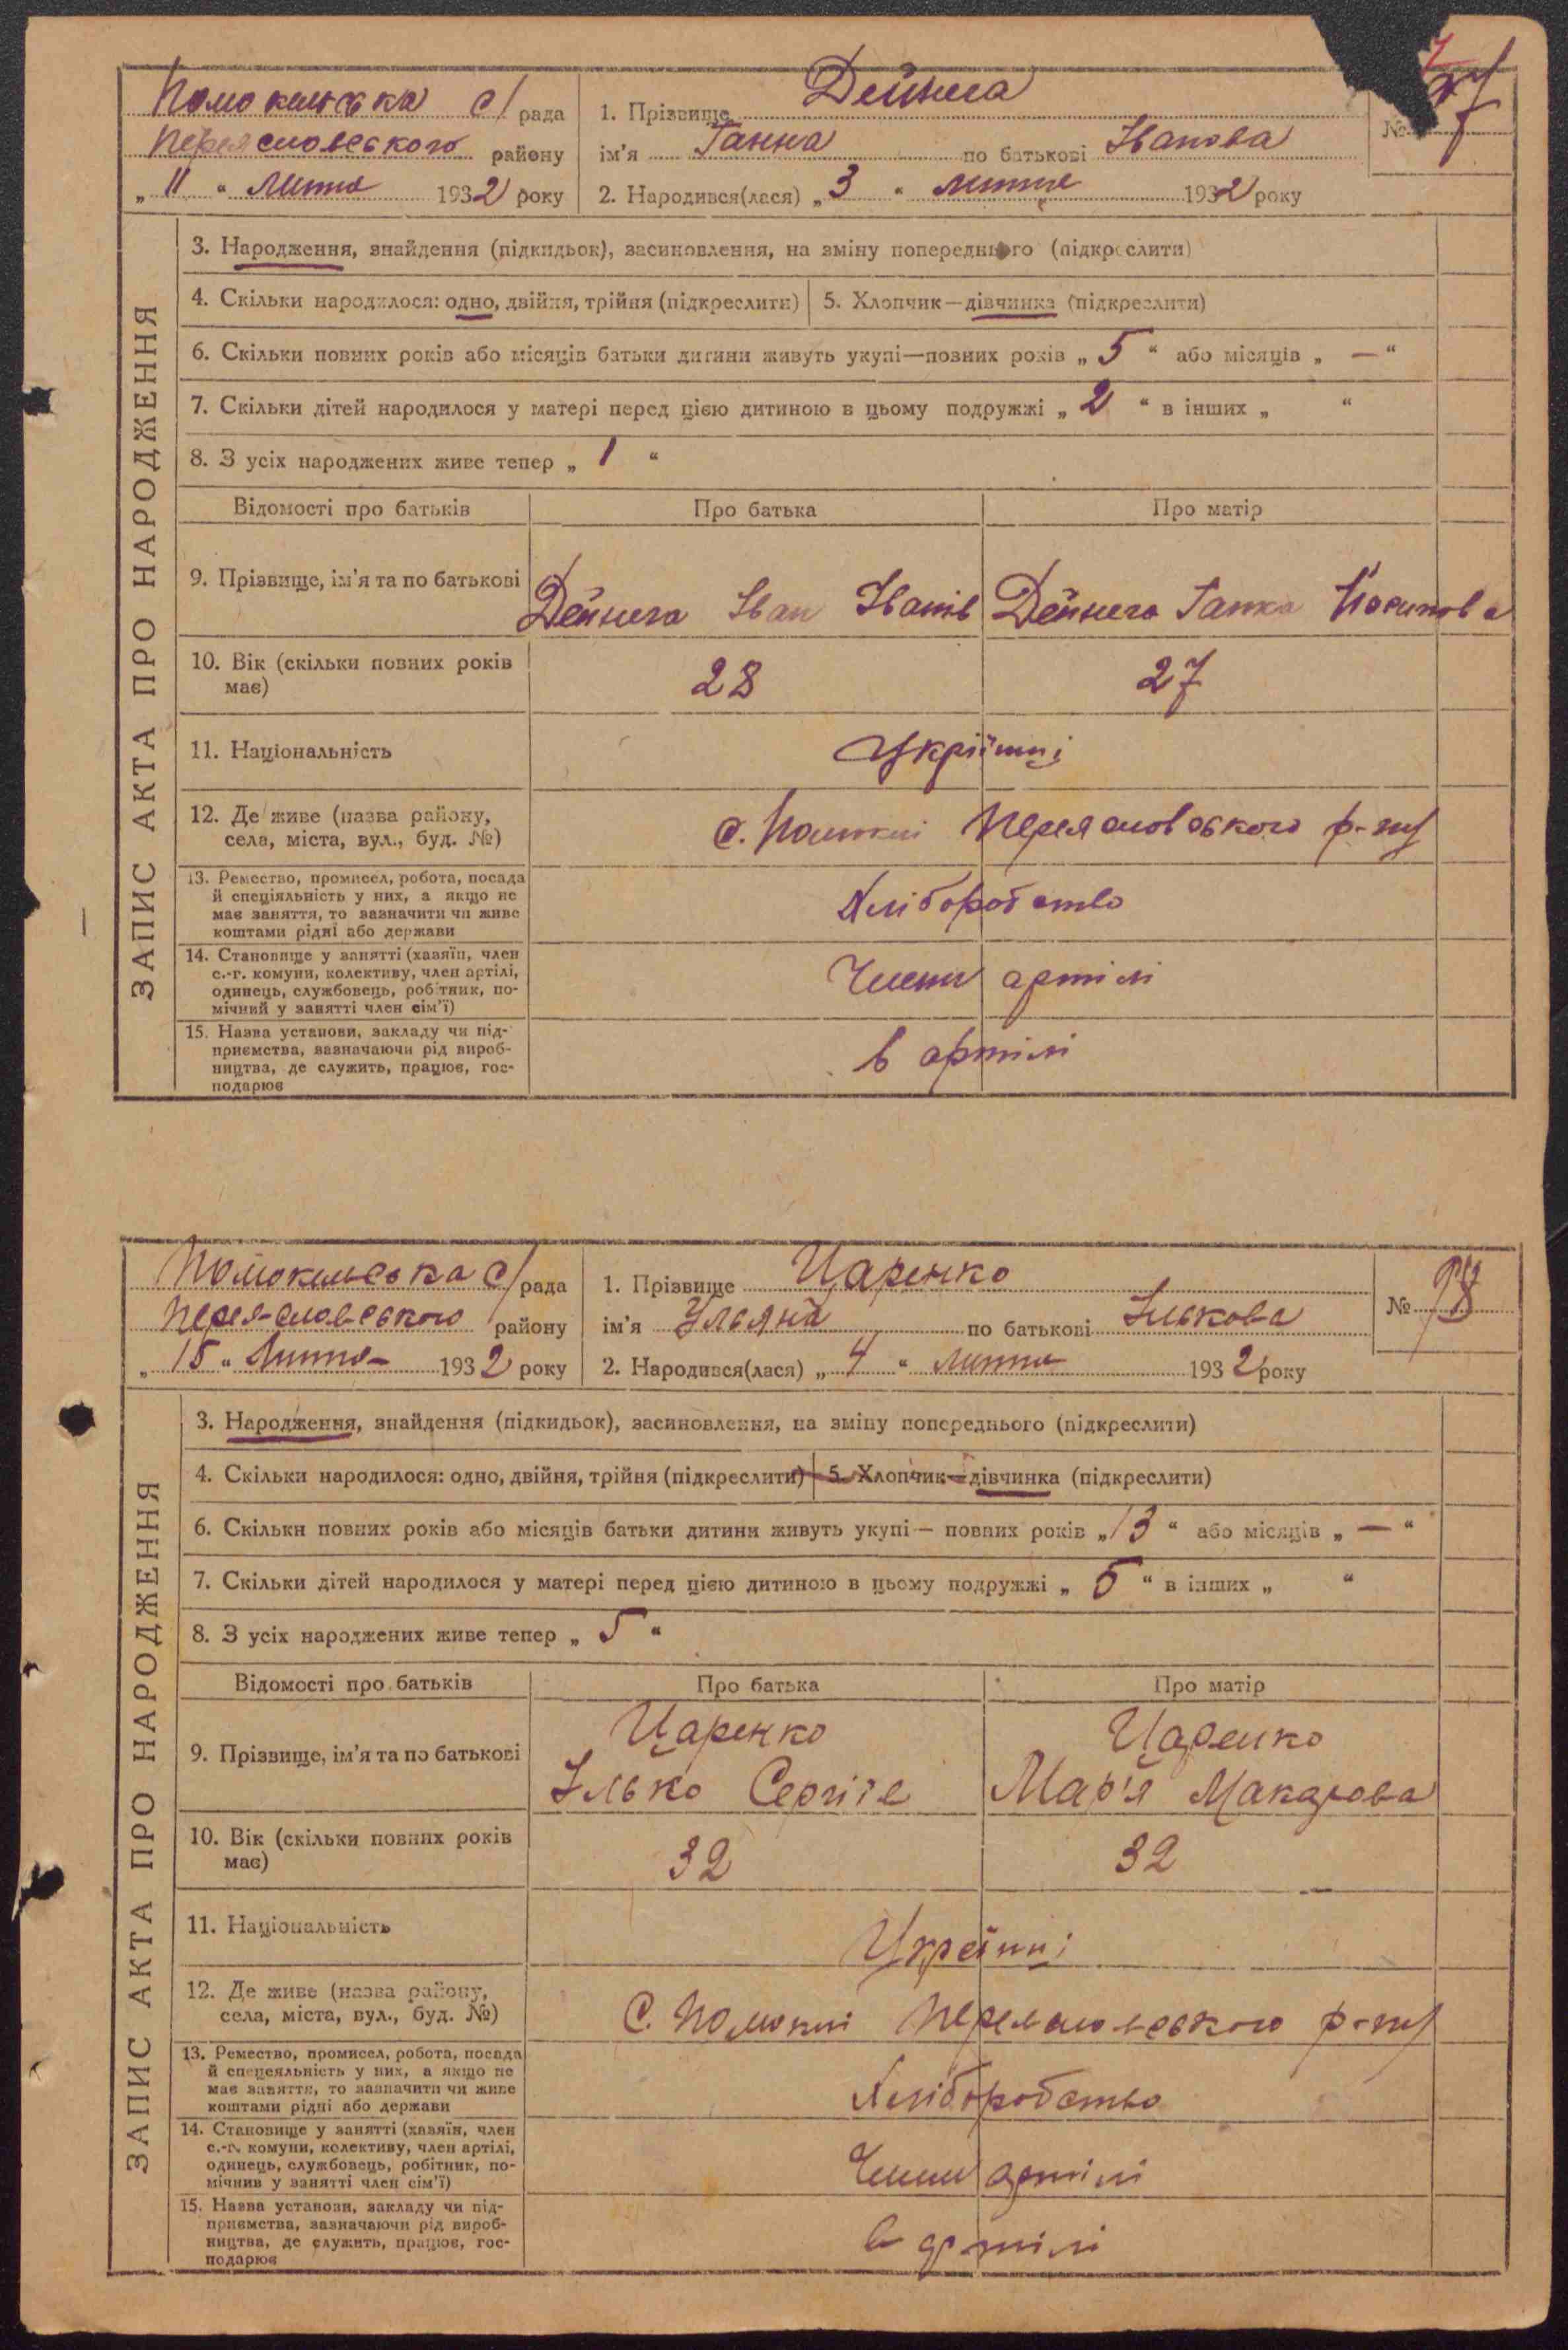 Помокельська с/рада
Переяславського району
„ 11 “ Липня 1932 року
1. Прізвище Дейнега
ім'я Ганна по батькові Іванова
2. Народився(лася) „ 3 “ липня 1932 року
№
ЗАПИС АКТА ПРО НАРОДЖЕННЯ
3. Народження, знайдення (підкидьок), засиновлення, на зміну попереднього (підкреслити)
4. Скільки народилося: одно, двійня, трійня (підкреслити) 5. Хлопчик—дівчинка (підкреслити)
6. Скільки повних років або місяців батьки дитини живуть укупі—повних років „ 5 “ або місяців „ — “
7. Скільки дітей народилося у матері перед цією дитиною в цьому подружжі „ 2 “ в інших „ “
8. З усіх народжених живе тепер „ 1 “
Відомості про батьків Про батька Про матір
9. Прізвище, ім'я та по батькові Дейнега Іван Іванів Дейнега Ганна Йосипова
10. Вік (скільки повних років
має) 28 27
11. Національність Українці
12. Де живе (назва району,
села, міста, вул., буд. №) с. Помоклі Переяславського р-ну
13. Ремество, промисел, робота, посада
й спеціяльність у них, а якщо не
має заняття, то зазначити чи живе
коштами рідні або держави Хліборобство
14. Становище у занятті (хазяїн, член
с.-г. комуни, колективу, член артілі,
одинець, службовець, робітник, по-
мічний у занятті член сім'ї) Члени артілі
15. Назва установи, закладу чи під-
приємства, зазначаючи рід вироб-
ництва, де служить, працює, гос-
подарює в артілі
Помокельська с/рада
Переяславського району
„ 15 “ Липня 1932 року
1. Прізвище Царенко
ім'я Ульяна по батькові Ількова
2. Народився(лася) „ 4 “ липня 1932 року
№
ЗАПИС АКТА ПРО НАРОДЖЕННЯ
3. Народження, знайдення (підкидьок), засиновлення, на зміну попереднього (підкреслити)
4. Скільки народилося: одно, двійня, трійня (підкреслити) 5. Хлопчик—дівчинка (підкреслити)
6. Скільки повних років або місяців батьки дитини живуть укупі — повних років „ 13 “ або місяців „ — “
7. Скільки дітей народилося у матері перед цією дитиною в цьому подружжі „ 5 “ в інших „ “
8. З усіх народжених живе тепер „ 5 “
Відомості про батьків Про батька Про матір
Царенко Царенко
9. Прізвище, ім'я та по батькові Ілько Мар'я Макарова
10. Вік (скільки повних років
має) 32 32
11. Національність Українці
12. Де живе (назва району,
села, міста, вул., буд. №) С. Помоклі Переяславського р-ну
13. Ремество, промисел, робота, посада
й спецеяльність у них, а якщо не
має заняття, то зазначити чи живе
коштами рідні або держави Хліборобство
14. Становище у занятті (хазяїн, член
с.-г. комуни, колективу, член артілі,
одинець, службовець, робітник, по-
мічнив у занятті член сім'ї) Члени артілі
15. Назва установи, закладу чи під-
приємства, зазначаючи рід вироб-
ництва, де служить, працює, гос-
подарює в артілі